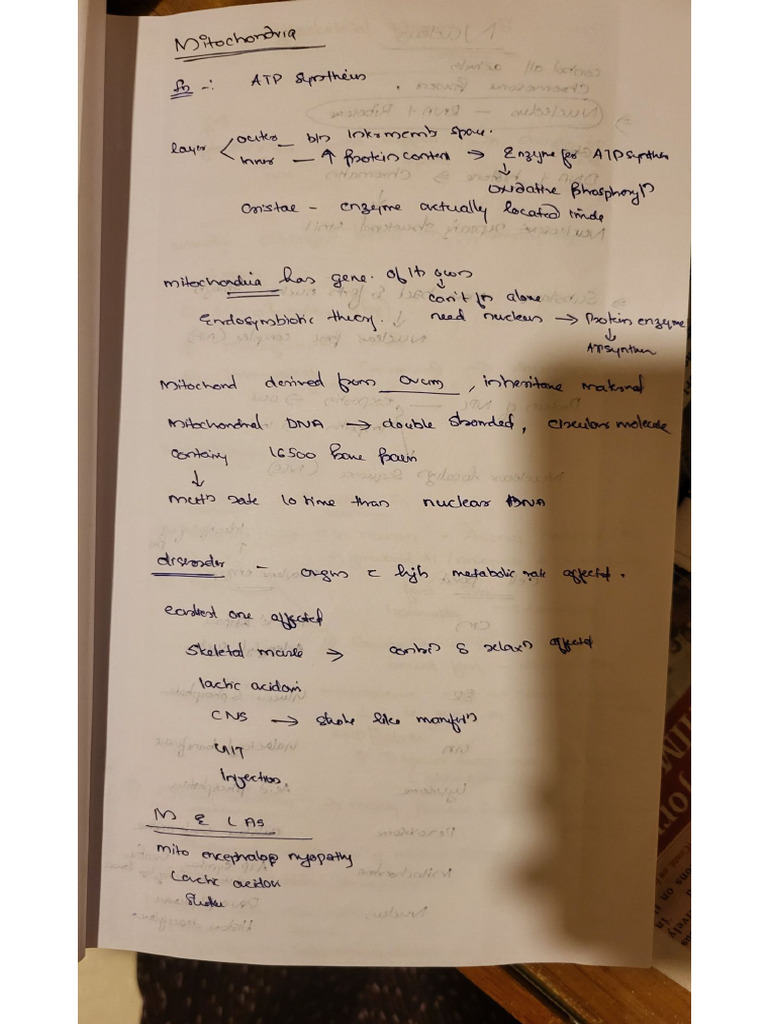 Mitochondria
fn -: ATP synthesis
layer outer - b/n Intermemb space.
inner - ↑ Protein content → Enzyme for ATP synthesis
↓
Oxidative Phosphoryl^n
Cristae - enzyme actually located inside
mitochondria has gene. of its own
↓
can't fn alone
Endosymbiotic theory. need nucleus → Protein enzyme
↓
ATP synthesis
Mitochond derived from Ovum, inheritance maternal
Mitochondrial DNA → double stranded, circular molecule
containing 16500 base pair
↓
mut^n rate 10 time than nuclear DNA
disorder - organs c high metabolic rate affected.
earliest one affected
Skeletal muscle → contr^n & relax^n affected
lactic acidosis
CNS → stroke like manif^n
GIT
Infection.
M E LAS
mito encephalop myopathy
Lactic acidosis
Stroke